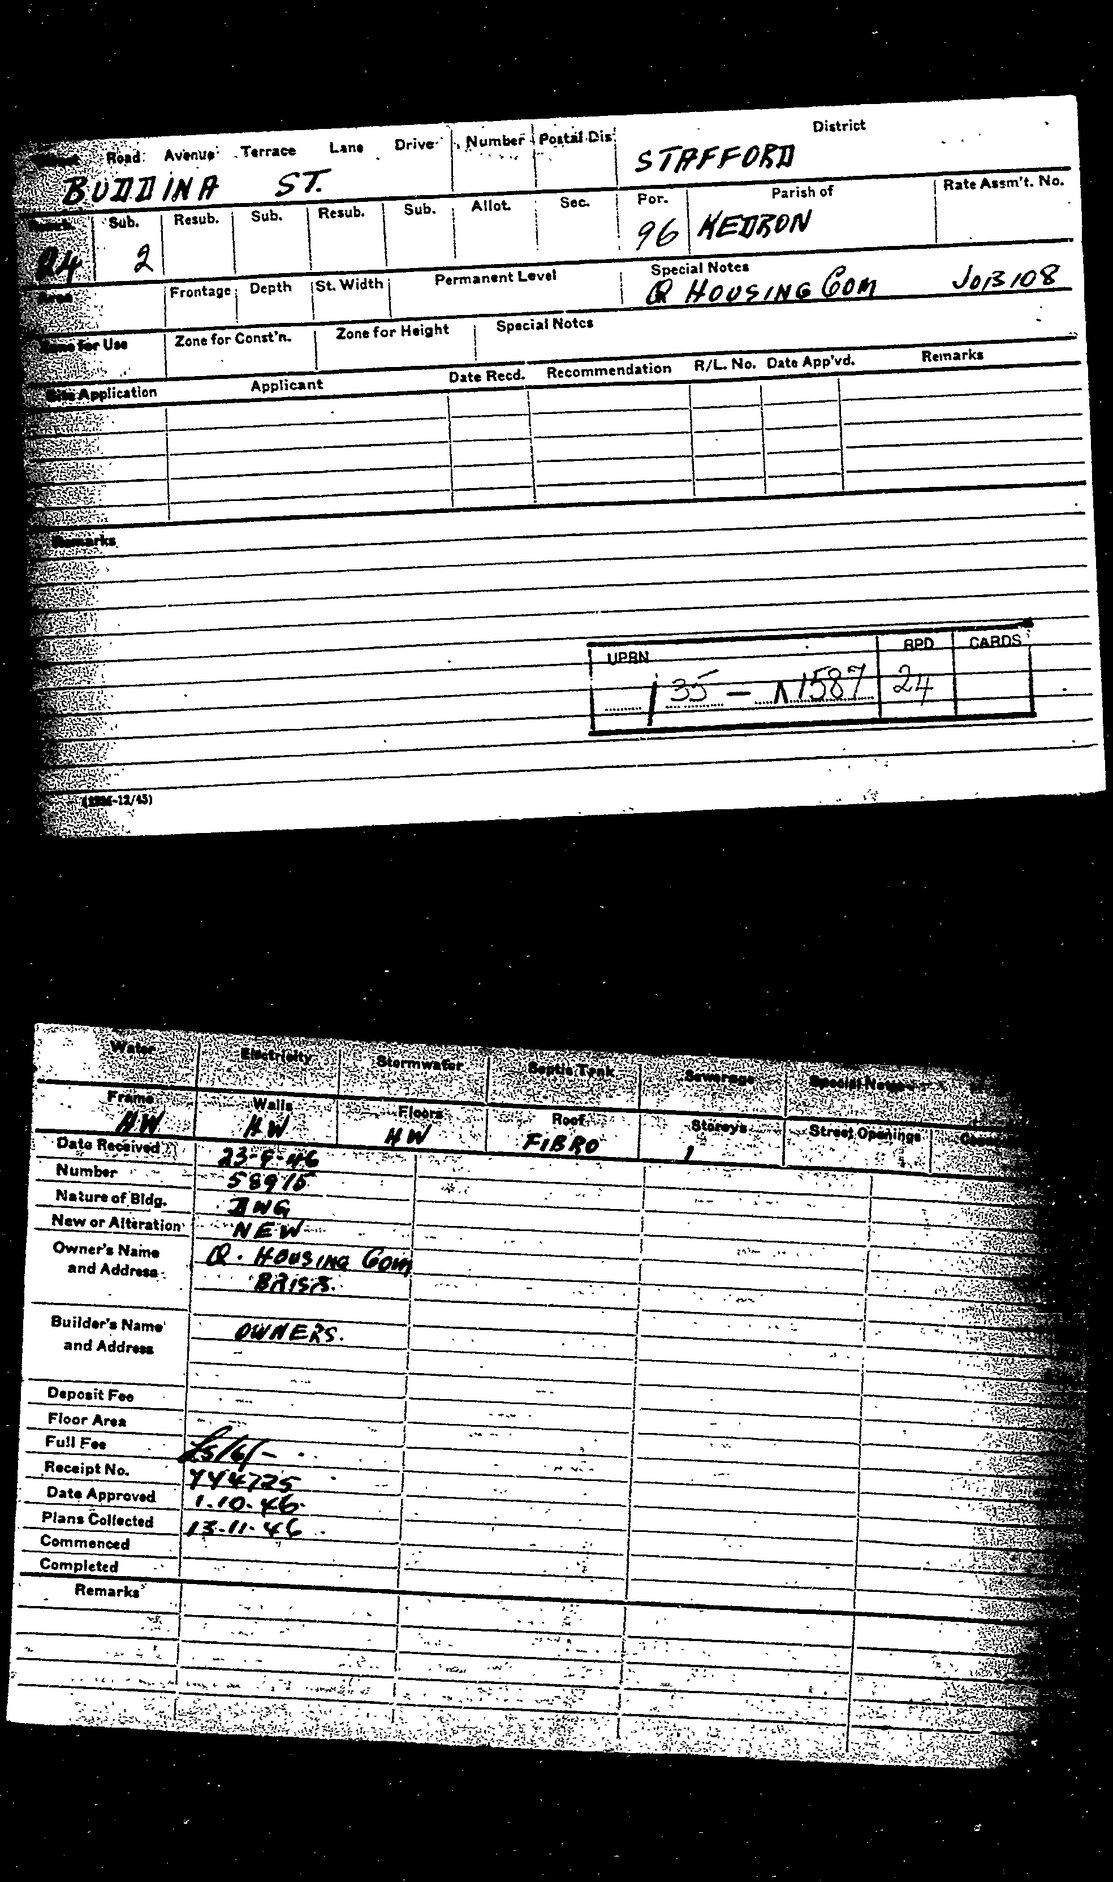 Street Road Avenue Terrace Lane Drive Number Postal Dis. District
BUDDINA ST. STAFFORD
Sub. Resub. Sub. Resub. Sub. Allot. Sec. Por. Parish of Rate Assm't. No.
24 2 96 KEDRON
Area Frontage Depth St. Width Permanent Level Special Notes
Q HOUSING COM JOB 108
Zone For Use Zone for Const'n. Zone for Height Special Notes
Site Application Applicant Date Recd. Recommendation R/L. No. Date App'vd. Remarks
Remarks
UPRN RPD CARDS
/ 35 - 1587 24
-12/45)
Water Electricity Stormwater Septic Tank Sewerage Special Notes
Frame Walls Floors Roof Storeys Street Openings
HW HW HW FIBRO 1
Date Received 23-9-46
Number 58915
Nature of Bldg. DWG
New or Alteration NEW
Owner's Name Q. HOUSING COM
and Address BRISB.
Builder's Name OWNERS.
and Address
Deposit Fee
Floor Area
Full Fee £5/6/-
Receipt No. 744725
Date Approved 1.10.46
Plans Collected 13-11-46
Commenced
Completed
Remarks